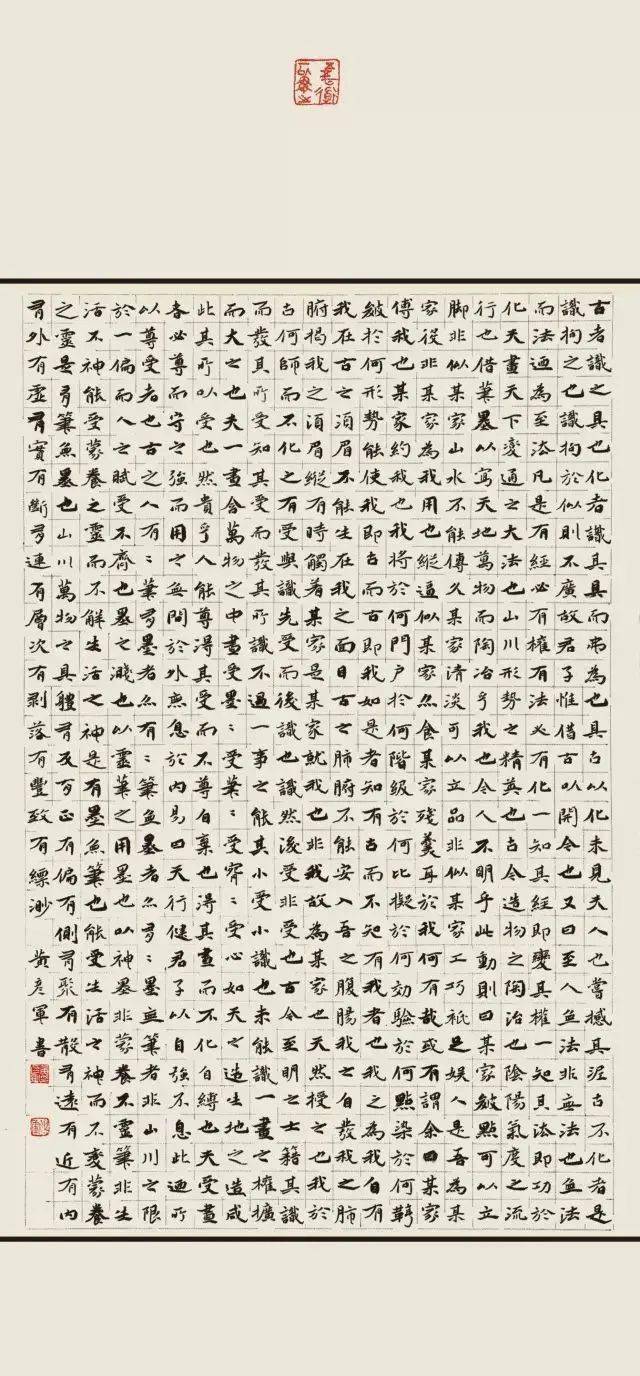 古者識之具也化者識其具而弗為也具古以化未見夫人也嘗憾其泥古不化者是
識拘之也識拘於似則不廣故君子惟借古以開今也又曰至人無法非無法也無法
而法迺為至法凡是有經必有權有法必有化一知其經即變其權一知其法即功於
化夫畫天下變通之大法也山川形勢之精英也古今造物之陶冶也陰陽氣度之流
行也借筆墨以寫天地萬物而陶冶乎我也今人不明乎此動則曰某家皴點可以立
脚非似某家山水不能傳久某家清淡可以立品非似某家工巧祇足娛人是吾為某
家役非某家為我用也縱逼似某家亦食某家殘羹耳於我何有哉或有謂余曰某家
傅我也某家約我也我將於何門户於何階級於何比擬於何効驗於何點染於何鞟
皴於何形勢能使我即古而古即我如是者知有古而不知有我者也我之為我自有
我在古之須眉不能生在我之面目古之肺腑不能安入吾之腹腸我自發我之肺
腑揭我之須眉縱有時觸着某家是某家就我也非我故為某家也天然授之也我於
古何師而不化之有受與識先受而後識也識然後受非受也古今至明之士籍其識
而發其所受知其受而發其所識不過一事之能其小受小識也未能識一畫之權擴
而大之也夫一畫含萬物之中畫受墨〻受筆〻受腕〻受心如天之造生地之造成
此其所以受也然貴乎人能尊得其受而不尊自棄也得其畫而不化自縛也夫受畫
者必尊而守之強而用之無間於外無息於內易曰天行健君子以自強不息此迺所
以尊受者也古之人有〻筆有墨者亦有〻筆無墨者亦有〻墨無筆者非山川之限
於一偏而人之賦受不齊也墨之濺也以靈筆之用墨也以神墨非蒙養不靈筆非生
活不神能受蒙養之靈而不解生活之神是有墨無筆也能受生活之神而不變蒙養
之靈是有筆無墨也山川萬物之具體有反有正有偏有側有聚有散有遠有近有內
有外有虛有實有斷有連有層次有剝落有豐致有縹渺 黄彥軍書